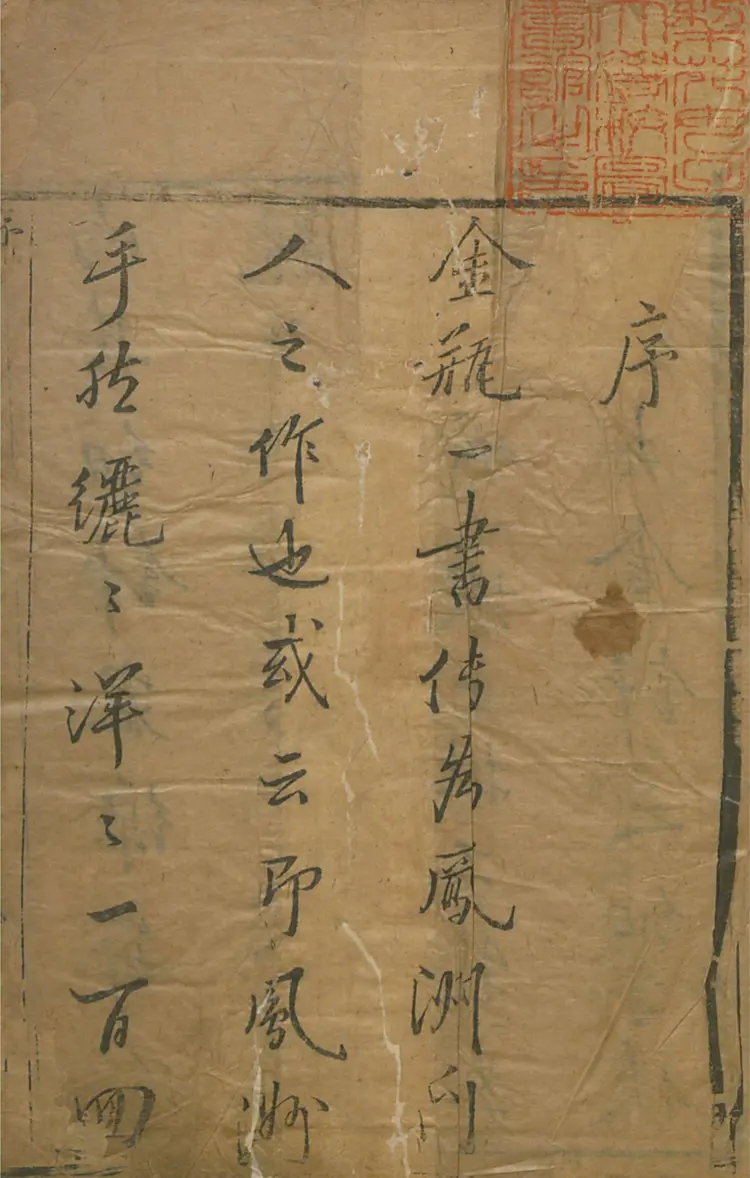 序
金瓶一書傳為鳳洲門
人之作也或云即鳳洲
手然纚〻洋〻一百回